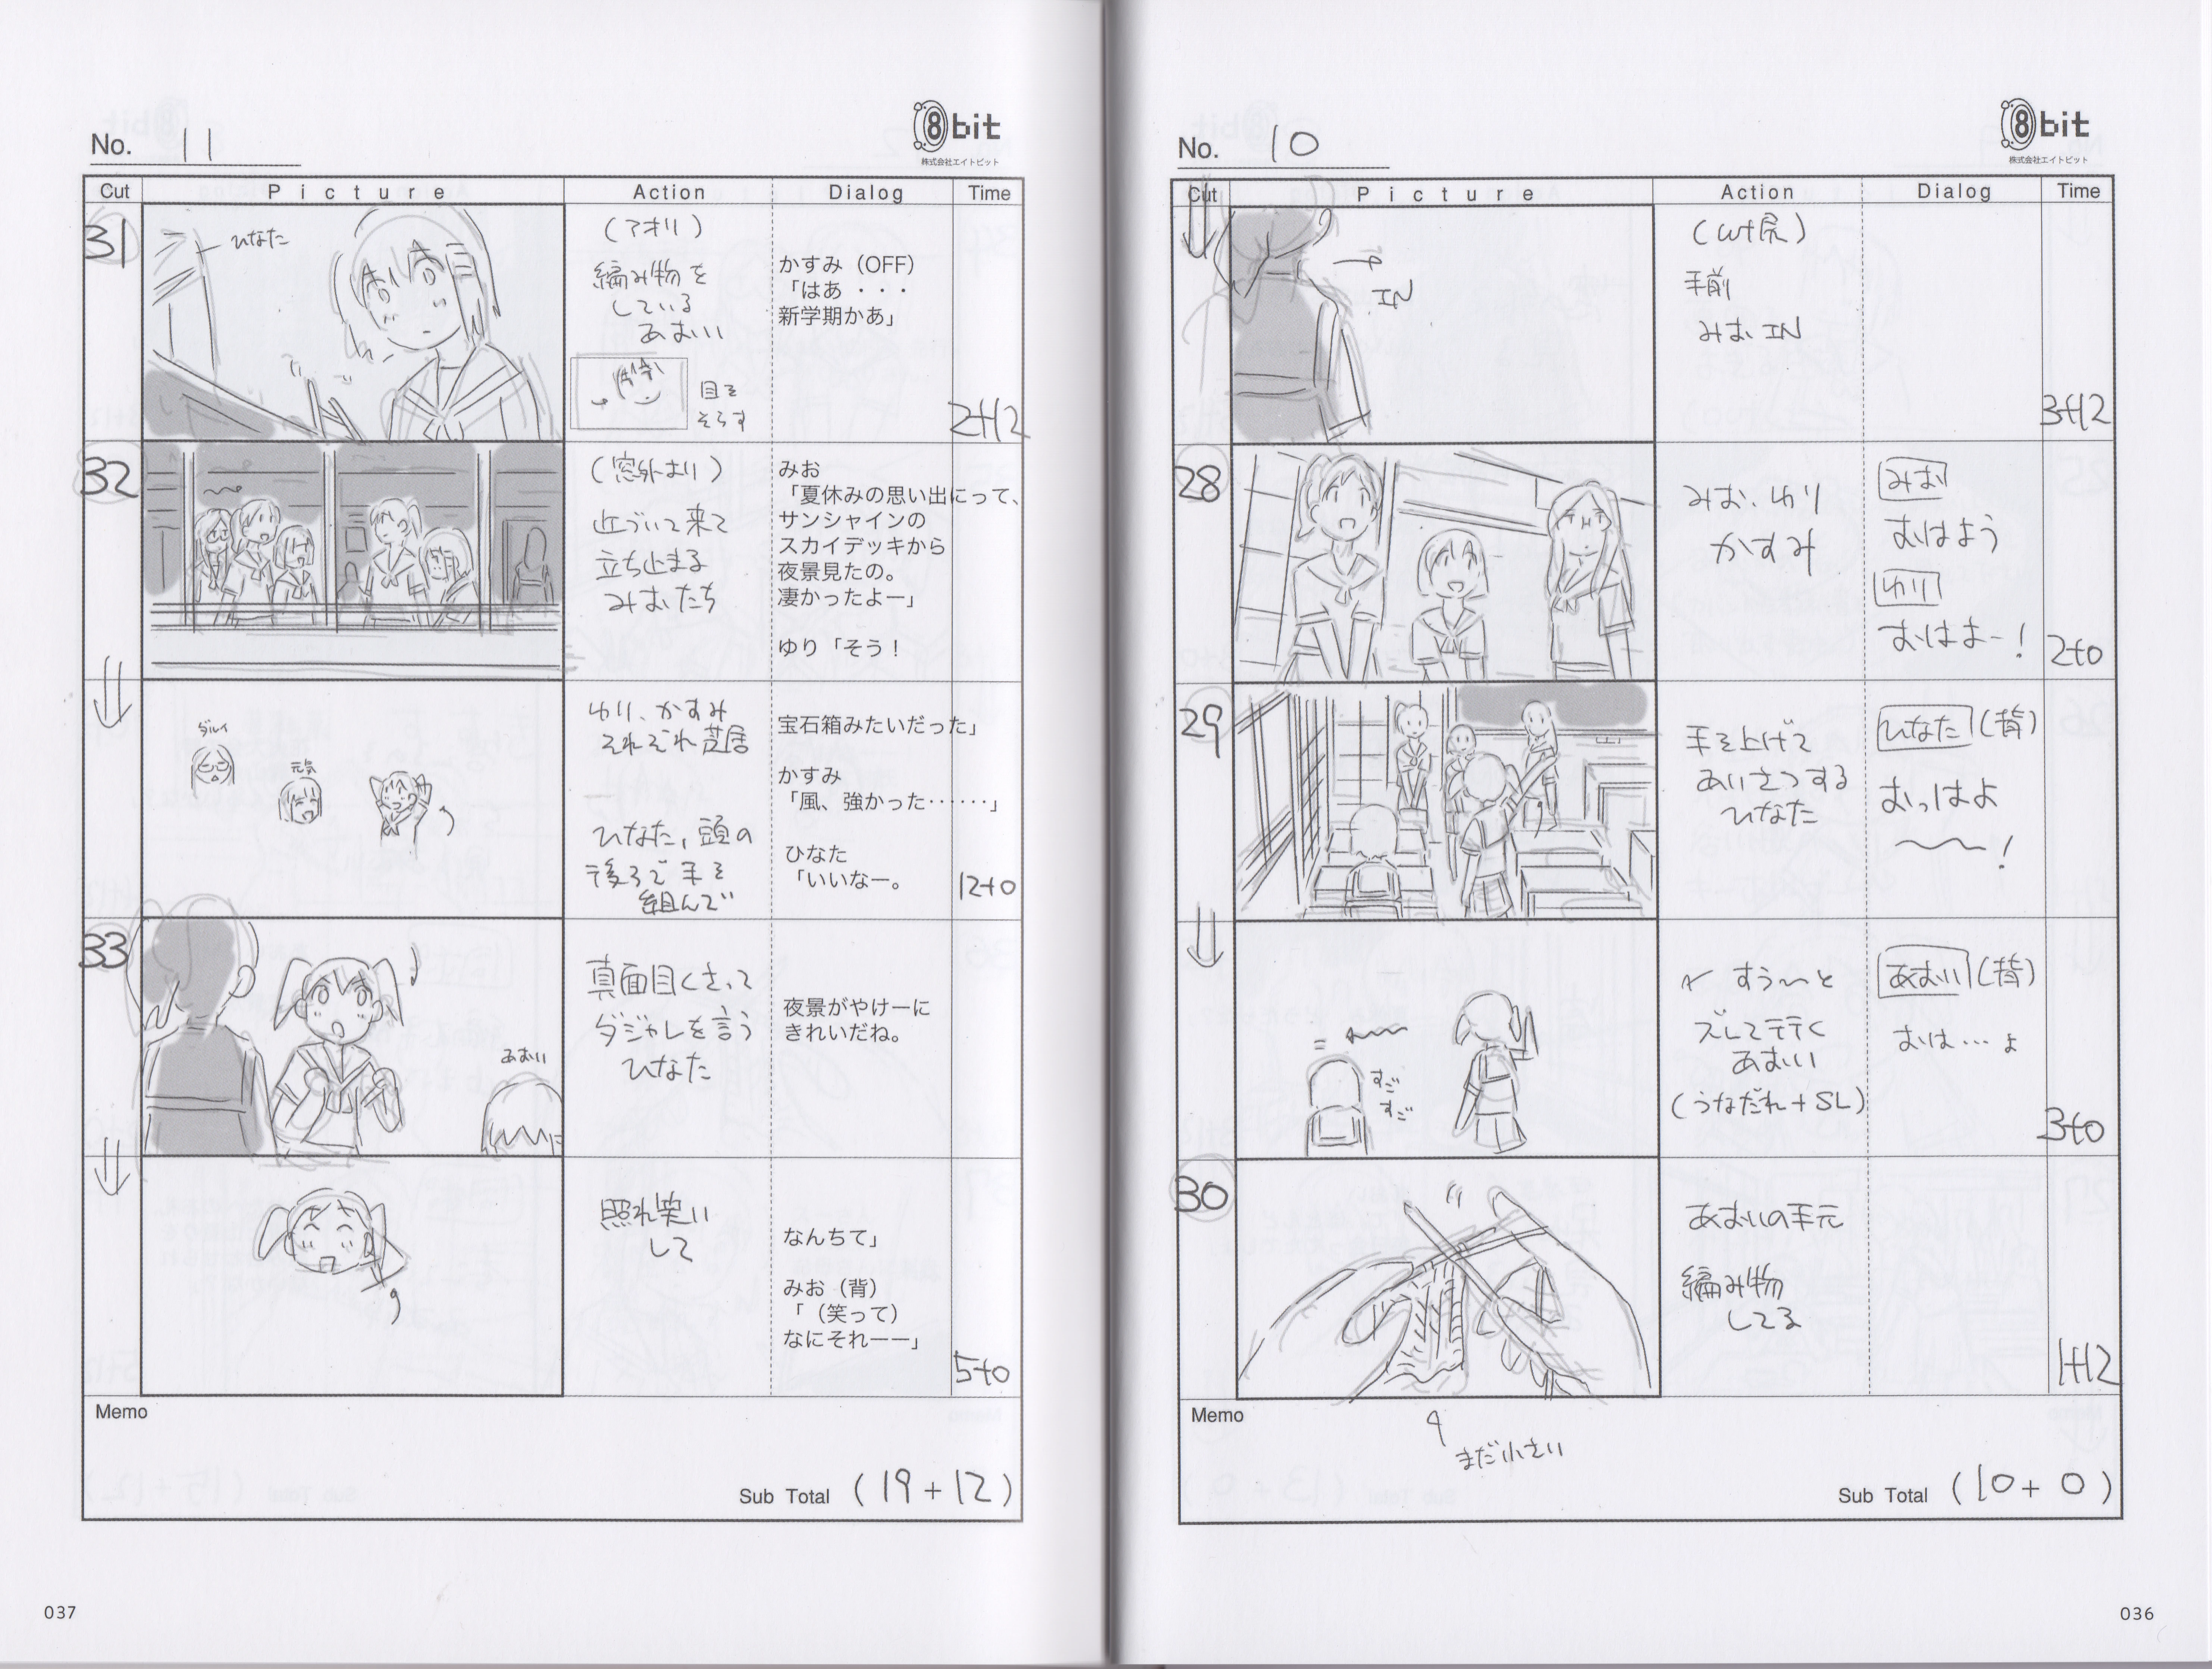 No. 10
8bit
株式会社エイトビット
Cut
Picture
Action
Dialog
Time
IN
手前
みお IN
3+12
28
みお、ゆり
かすみ
みお
おはよう
ゆり
おはよー!
2+0
29
手を上げて
あいさつする
ひなた
ひなた(背)
おっはよ
〜〜!
すごすご
すう〜と
ズレて行く
あおい
(うなだれ+SL)
あおい(背)
おは…ょ
3+0
30
あおいの手元
編み物
してる
1+12
Memo
まだ小さい
Sub Total (10+0)
036
No. 11
8bit
株式会社エイトビット
Cut
Picture
Action
Dialog
Time
31
ひなた
(アオリ)
編み物を
している
あおい
目を
そらす
かすみ(OFF)
「はあ・・・
新学期かあ」
2+12
32
(窓外より)
近づいて来て
立ち止まる
みおたち
みお
「夏休みの思い出にって、
サンシャインの
スカイデッキから
夜景見たの。
凄かったよー」
ゆり「そう!
ダルイ
元気
ゆり、かすみ
それぞれ芝居
ひなた、頭の
後ろで手を
組んで
宝石箱みたいだった」
かすみ
「風、強かった……」
ひなた
「いいなー。
12+0
33
あおい
真面目くさって
ダジャレを言う
ひなた
夜景がやけーに
きれいだね。
照れ笑い
して
なんちて」
みお(背)
「(笑って)
なにそれーー」
5+0
Memo
Sub Total (19+12)
037